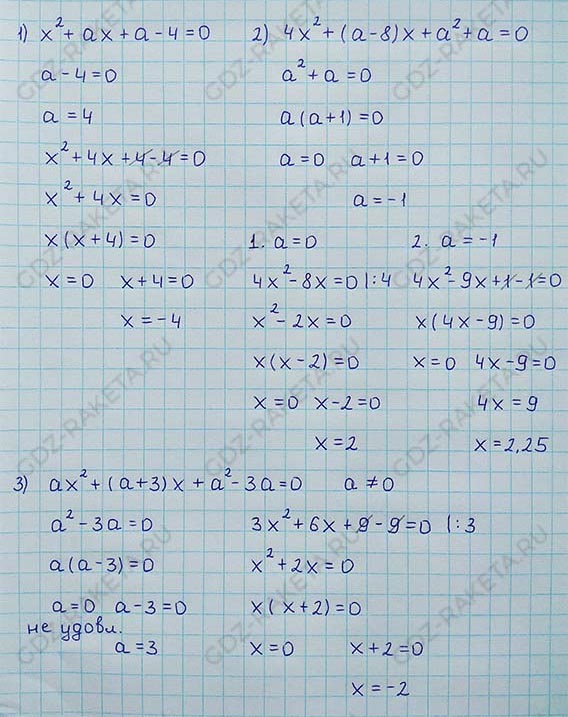 1) x² + ax + a - 4 = 0
a - 4 = 0
a = 4
x² + 4x + 4 - 4 = 0
x² + 4x = 0
x(x + 4) = 0
x = 0 x + 4 = 0
x = -4
2) 4x² + (a - 8)x + a² + a = 0
a² + a = 0
a(a + 1) = 0
a = 0 a + 1 = 0
a = -1
1. a = 0
4x² - 8x = 0 |: 4
x² - 2x = 0
x(x - 2) = 0
x = 0 x - 2 = 0
x = 2
2. a = -1
4x² - 9x + 1 - 1 = 0
x(4x - 9) = 0
x = 0 4x - 9 = 0
4x = 9
x = 2,25
3) ax² + (a + 3)x + a² - 3a = 0 a ≠ 0
a² - 3a = 0
a(a - 3) = 0
a = 0 a - 3 = 0
не удовл.
a = 3
3x² + 6x + 9 - 9 = 0 |: 3
x² + 2x = 0
x(x + 2) = 0
x = 0 x + 2 = 0
x = -2
GDZ-RAKETA.RU